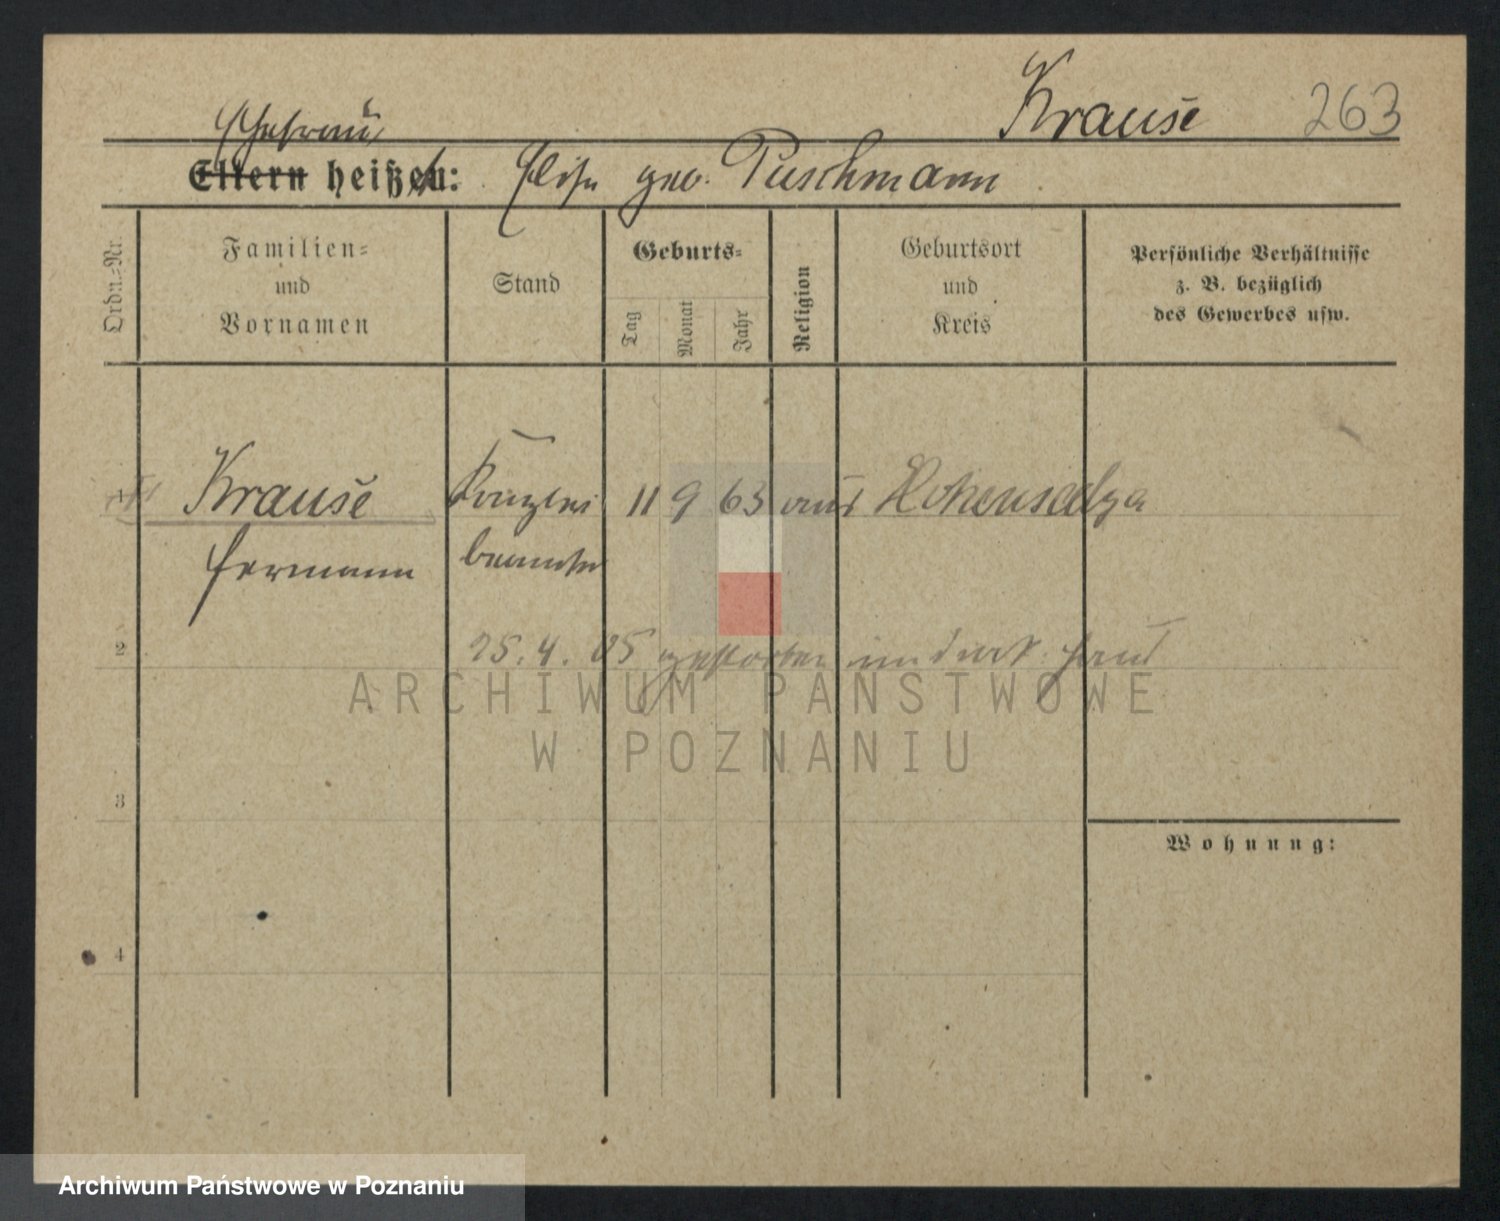 Krause 263
Ehefrau
Eltern heißen: Elise geb. Puschmann
Ordn.-Nr.
Familien-
und
Vornamen
Stand
Geburts-
Tag
Monat
Jahr
Religion
Geburtsort
und
Kreis
Persönliche Verhältnisse
z. B. bezüglich
des Gewerbes usw.
1 Krause Kanzlei 11 9 63 aus Hohensalza
Hermann beamter
2 25. 4. 05 gestorben im Haus
ARCHIWUM PAŃSTWOWE
W POZNANIU
3
Wohnung:
4
Archiwum Państwowe w Poznaniu